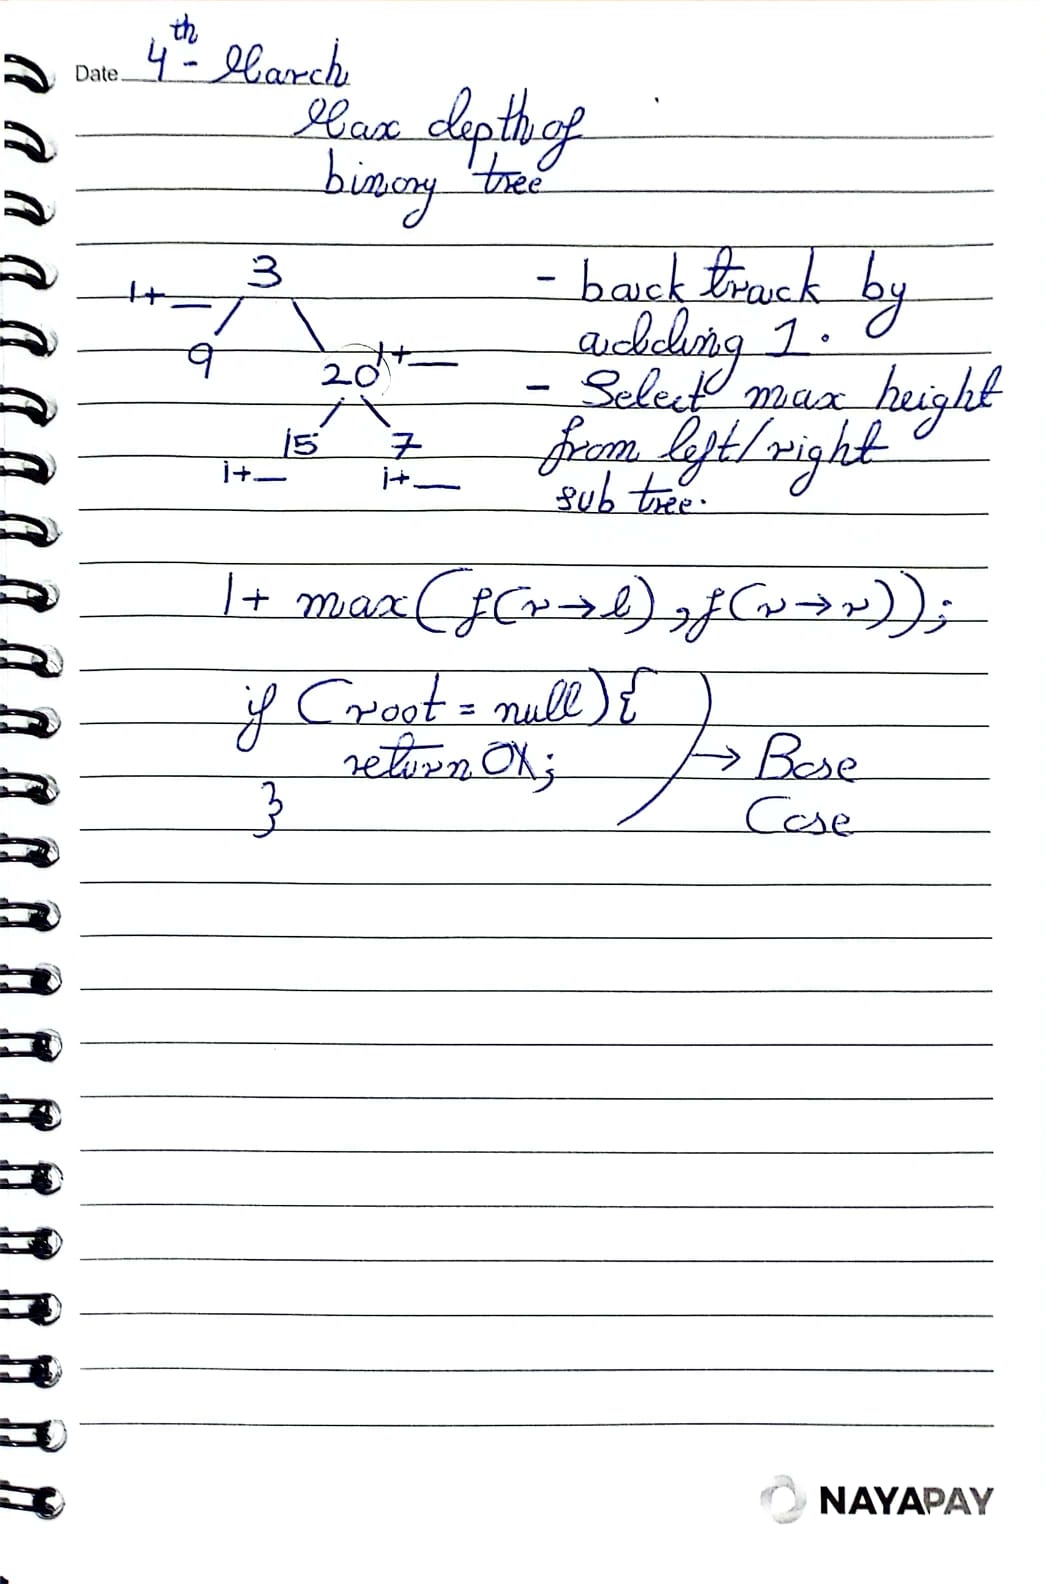 Date 4th - March
Max depth of
binary tree
3
1+_
9
20 1+_
15 7
1+_ 1+_
- back track by
adding 1.
- Select max height
from left/right
sub tree.
1+ max(f(r→l),f(r→r));
if (root = null){
return 0;
}
→ Base
Case
NAYAPAY